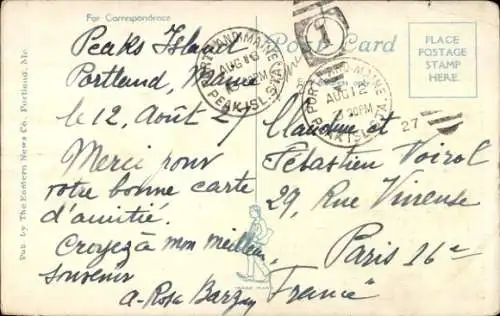 For Correspondence
Post Card
PLACE
POSTAGE
STAMP
HERE
PORTLAND MAINE
AUG 13
30PM
PEAK ISL. STA.
1
PORTLAND MAINE
AUG 12
30PM
PEAK ISL. STA.
27
Peaks Island
Portland, Maine
le 12, Août 27
Merci pour
votre bonne carte
d'amitié.
Croyez à mon meilleur
souvenir
a-Rose Barzay
Claudine et
Sébastien Voirol
29, Rue Vineuse
Paris 16e
France
Pub. by The Eastern News Co., Portland, Me.